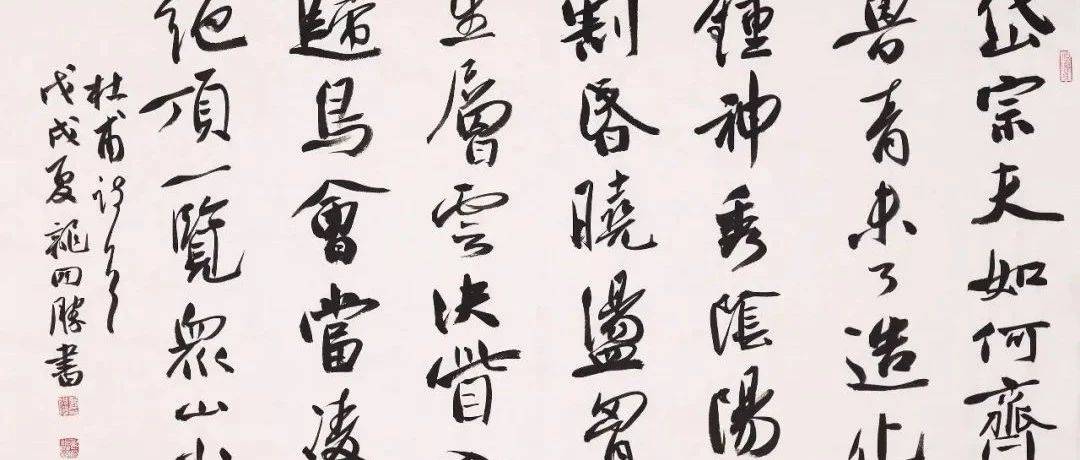 岱宗夫如何齊
魯青未了造化
鍾神秀陰陽
割昏曉盪胷
生層雲決眥入
歸鳥會當凌
絕頂一覽眾山小
杜甫詩
戊戌夏四勝書